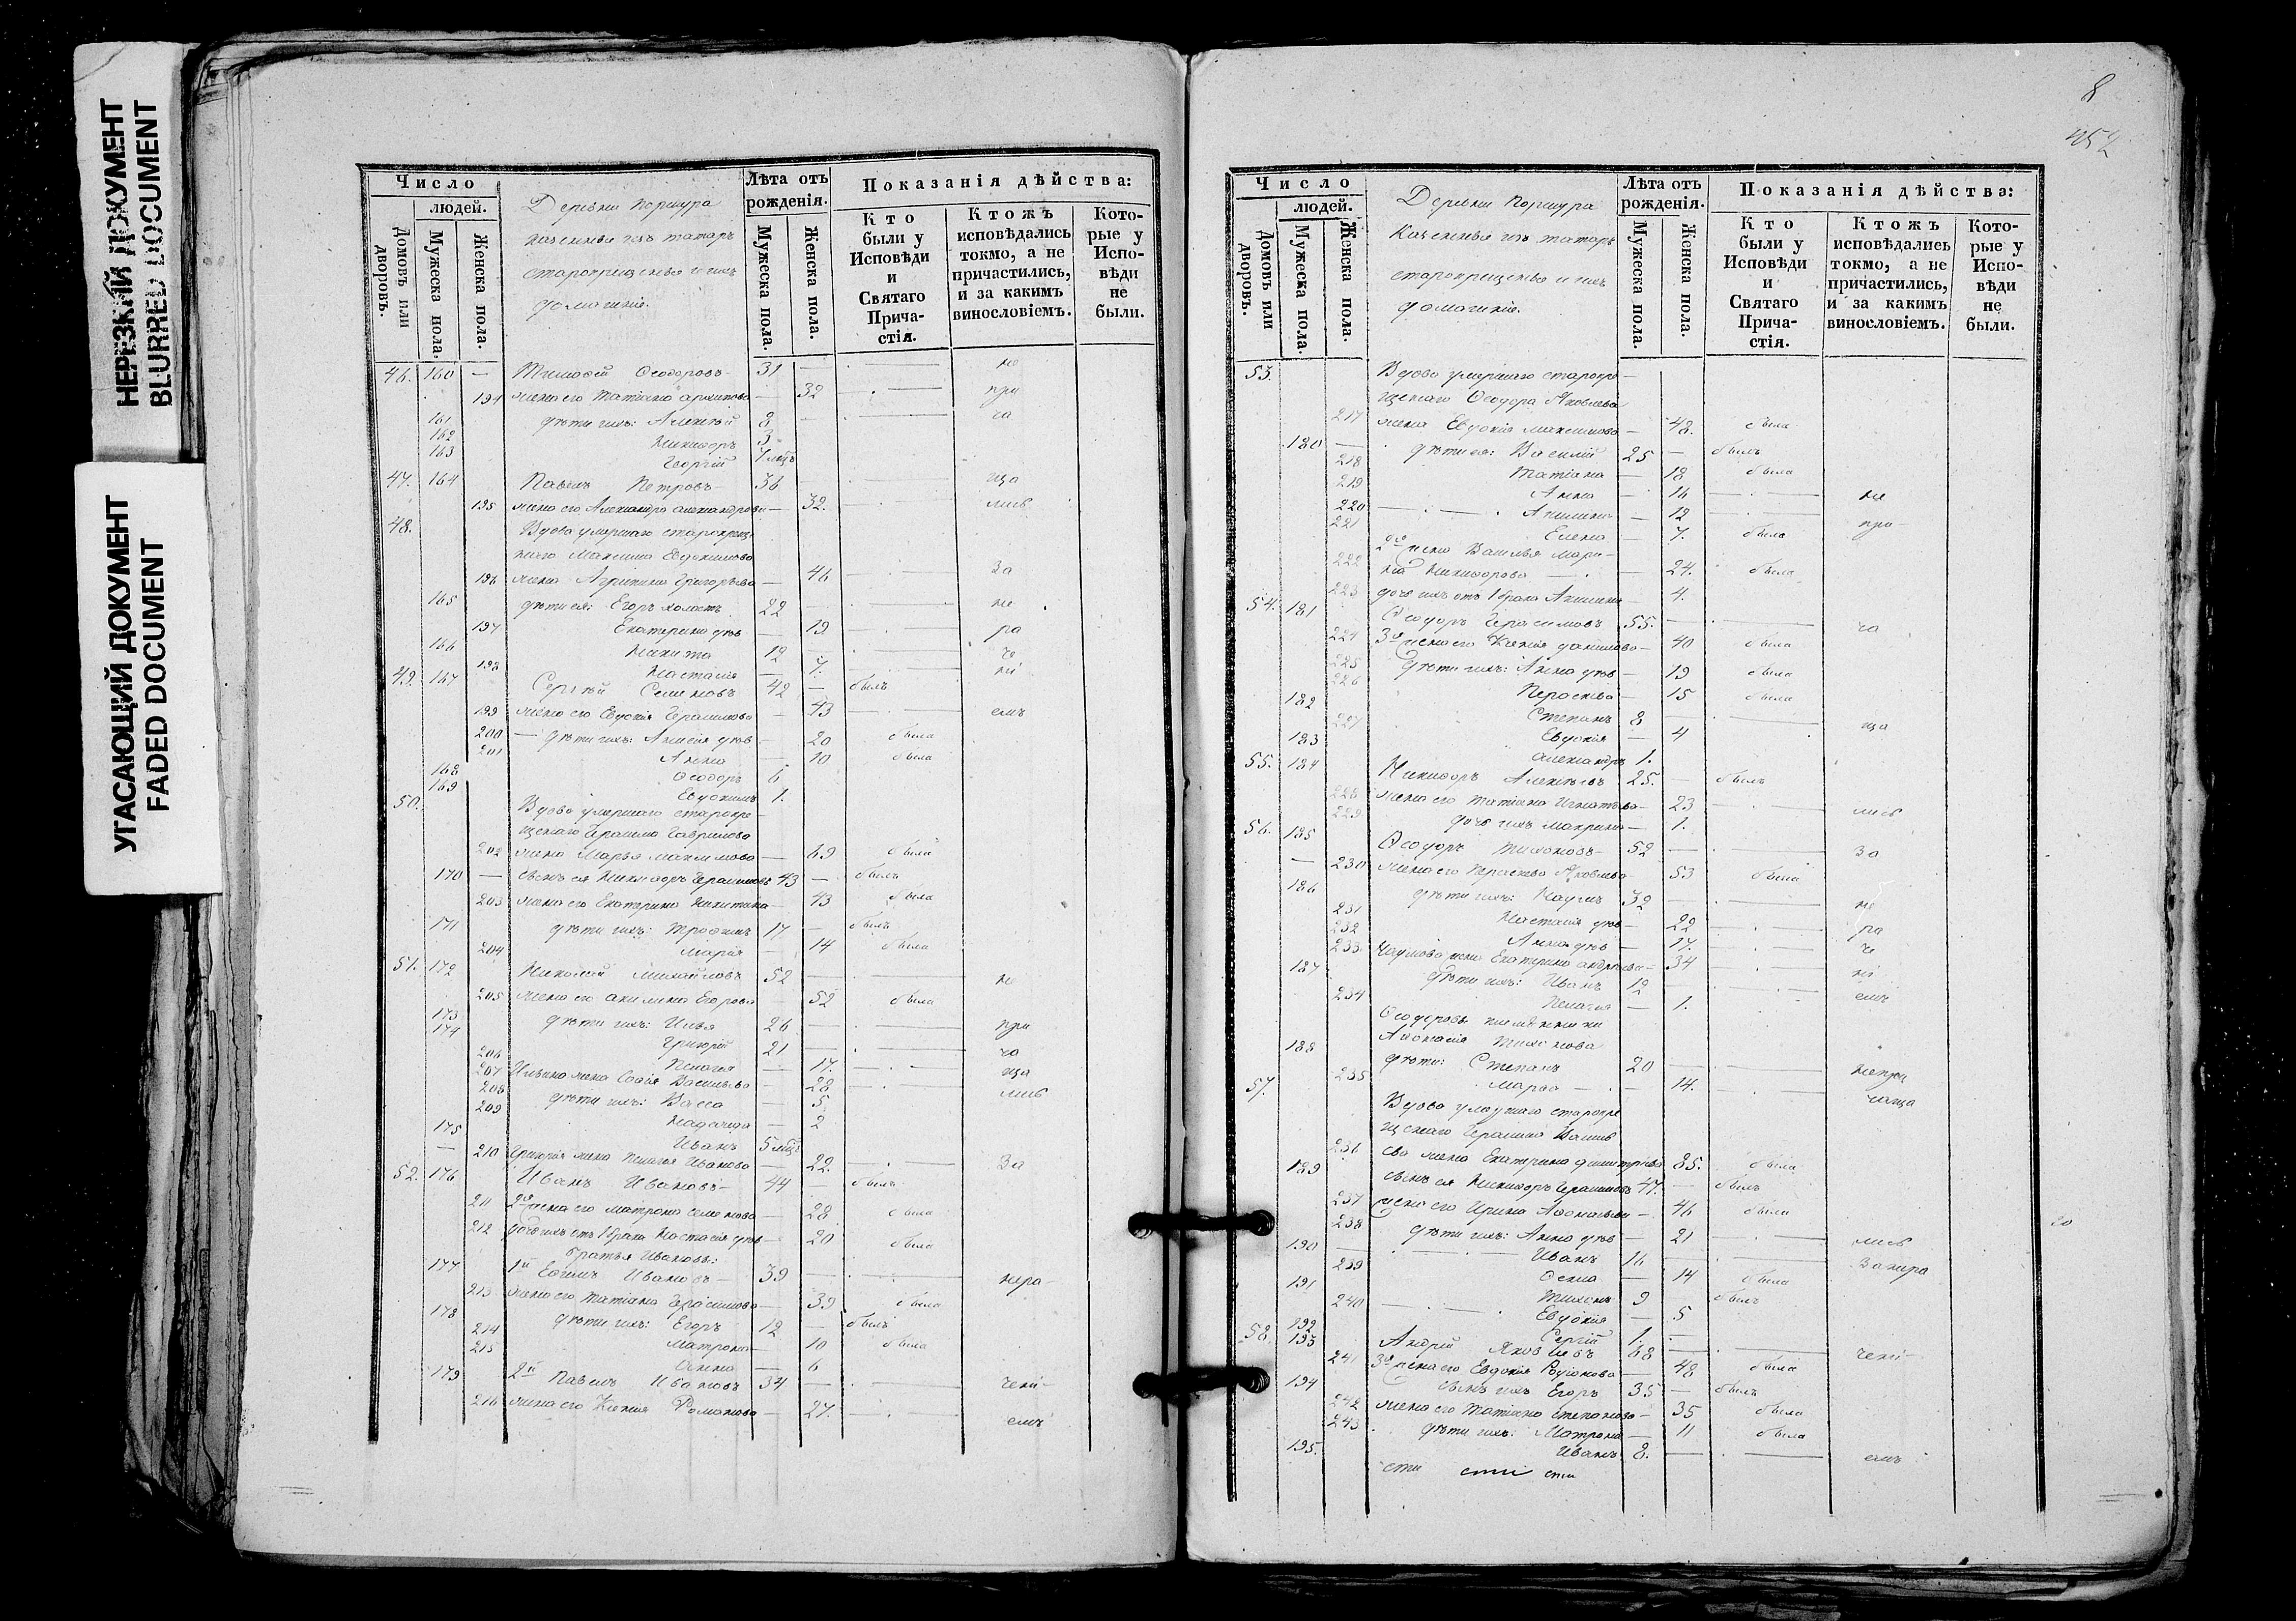 НЕРЕЗКИЙ ДОКУМЕНТ
BLURRED DOCUMENT
УГАСАЮЩИЙ ДОКУМЕНТ
FADED DOCUMENT
Число
людей.
Домовъ или дворовъ.
Мужеска пола.
Женска пола.
Деревни Поршура
казенные изъ татаръ
старокрещеные и ихъ
домашніе.
Лѣта отъ рожденія.
Мужеска пола.
Женска пола.
Показанія дѣйства:
Кто были у Исповѣди и Святаго Прича-стія.
Ктожъ исповѣдались токмо, а не причастились, и за какимъ винословіемъ.
Кото-рые у Испо-вѣди не были.
46. 160 — Тимофей Ѳеодоровъ 31 — не
194 жена его Татіана Архипова — 32 при
161 дѣти ихъ: Алексѣй 8 ча
162 Никифоръ 3
163 Георгій 7 мцъ
47. 164 Павелъ Петровъ 36 ща
195 жена его Александра Александрова — 32. лись
48. Вдова умершаго старокрещ
наго Максима Евдокимова
196 жена Агрипина Григорьева — 46 За
165 дѣти ея: Егоръ холостъ 22 не
197 Екатерина дѣв — 19 ра
166 Никита 12 че
198 Настасія — 7. ні
49. 167 Сергѣй Семеновъ 42 — былъ
199 жена его Евдокія Герасимова — 43 емъ
200 — дѣти ихъ: Анисія дѣв — 20 была
201 Анна — 10 была
168 Ѳеодоръ 6
169 Евдокимъ 1.
50. Вдова умершаго старокре-
щенаго Герасима Гаврилова
202 жена Марья Максимова — 69 была
170 — сынъ ея Никифоръ Герасимовъ 43 — былъ
203 жена его Екатерина Никитина — 43 была
171 дѣти ихъ: Трофимъ 17 — былъ
204 Марія — 14 была
51. 172 Николай Михайловъ 52 — не
205 жена его Акилина Егорова — 52 была
173 дѣти ихъ: Илья 26 — при
174 Григорій 21 — ча
206 Пелагея — 17. ща
207 Ильина жена Софія Васильева — 28 лись
208 дѣти ихъ: Васса — 5
209 Надежда — 2
175 Иванъ 5 мцъ
— 210 Григорія жена Пелагья Иванова — 22. За
52. 176 Иванъ Ивановъ 44 — былъ
211 2я жена его Матрона Семенова — 28 была
212 дочь ихъ отъ 1 брака Настасія дѣв — 20 была
братья Ивановы:
177 1й Ефимъ Ивановъ 39 — нера-
213 жена его Татіана Герасимова — 39 была
178 дѣти ихъ: Егоръ 12 — былъ
214 Матрона — 10 была
215 Анна — 6
179 2й Павелъ Ивановъ 34 — чені-
216 жена его Ксенія Романова — 27. емъ
8
452
Число
людей.
Домовъ или дворовъ.
Мужеска пола.
Женска пола.
Деревни Поршура
Казенные изъ татаръ
старокрещеные и ихъ
домашніе.
Лѣта отъ рожденія.
Мужеска пола.
Женска пола.
Показанія дѣйства:
Кто были у Исповѣди и Святаго Прича-стія.
Ктожъ исповѣдались токмо, а не причастились, и за какимъ винословіемъ.
Кото-рые у Испо-вѣди не были.
53. Вдова умершаго старокре —
щенаго Ѳеодора Яковлева
217 жена Евдокія Максимова — 48. была
180 — дѣти ея: Василій 25 — былъ
218 Татіана — 18 была
219 Анна — 16 не
220 Акилина — 12 при
221 Елена — 7. была
2я жена Василья Мари-
222 на Никифорова — 24. была
223 дочь ихъ отъ 1 брака Акилина — 4.
54. 181 Ѳеодоръ Герасимовъ 55. — ча
224 3я жена его Ксенія Данилова — 40 была
225 дѣти ихъ: Анна дѣв — 19 была
226 Пераскева — 15 была
182 Степанъ 8 ща
227 Евдокія — 4
183 Александръ 1.
55. 184 Никифоръ Алексѣевъ 25. — былъ
228 жена его Татіана Игнатьева — 23 лись
229 дочь ихъ Макрина — 1.
56. 185 Ѳеодоръ Тихоновъ 52 — За
— 230 жена его Пераскева Яковлева 53 была
186 дѣти ихъ: Наумъ 32 не
231 Настасія дѣв — 22 ра
232 Анна дѣв — 17. че
233 Наумова жена Екатерина Андреева — 34 ні
187 дѣти ихъ: Иванъ 12 емъ
234 Пелагея — 1.
Ѳеодоровы племянники
Афонасія Тихонова
188 дѣти: Степанъ 20 непри
235 Марья — 14. чаща
57. Вдова умершаго старокре
щенаго Герасима Василь
236 ева жена Екатерина Дмитріева 85. была
189 сынъ ея Никифоръ Герасимовъ 47. — былъ
237 жена его Ирина Афонасьева — 46 была
238 дѣти ихъ: Анна дѣв — 21 лись
190 Иванъ 16 За нера
239 Осіна — 14 была
191 Тихонъ 9 былъ
240 Евдокія — 5
192 Сергій 1.
58. 193 Андрей Яковлевъ 68 — чені-
241 3я жена его Евдокія Родіонова — 48 была
194 сынъ ихъ Егоръ 35 — былъ
242 жена его Татіана Степанова — 35 была
243 дѣти ихъ: Матрона — 11 была
195. Иванъ 8. — емъ
сти сти сти
20